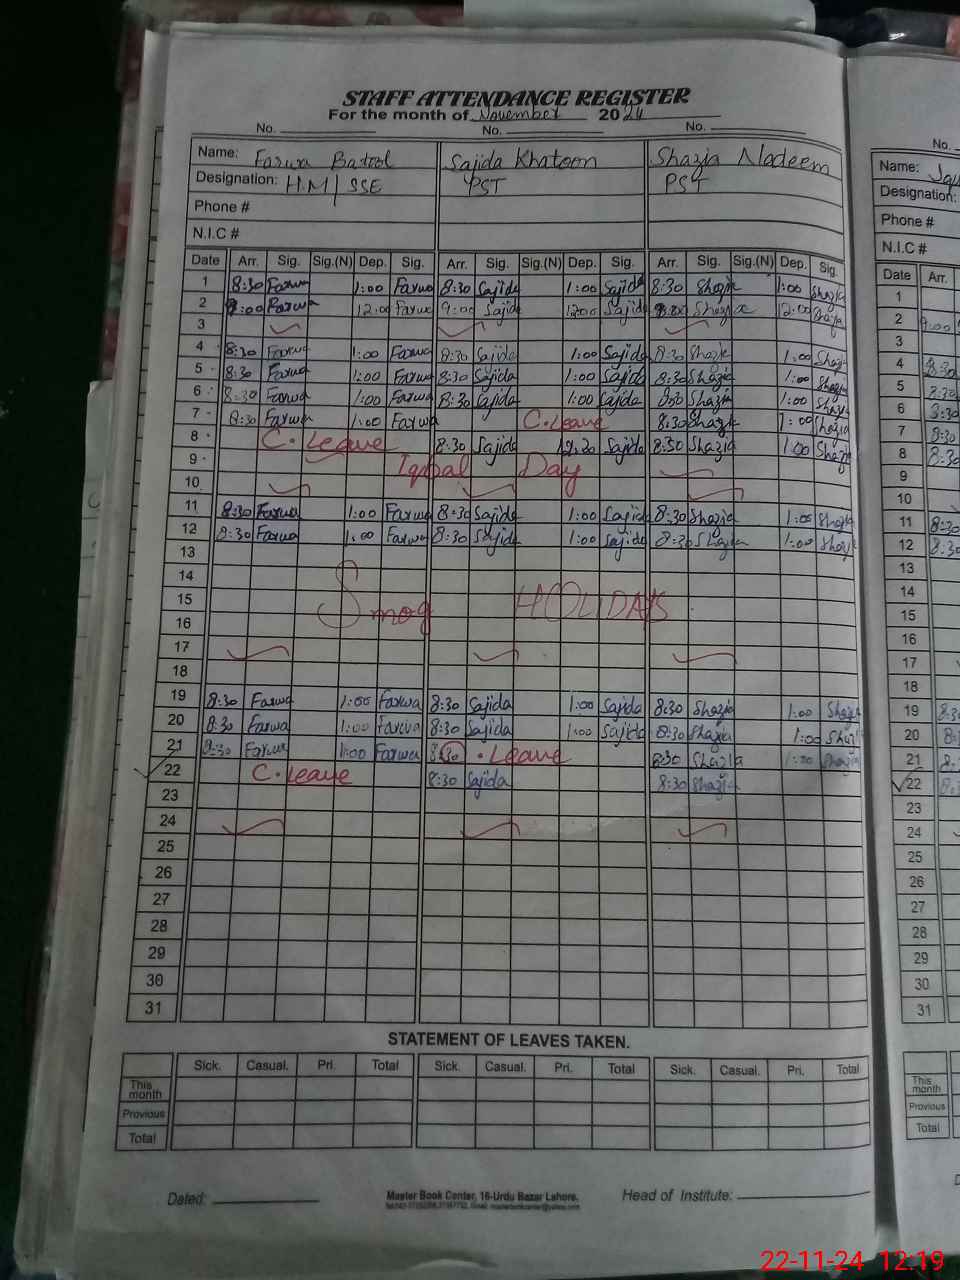 STAFF ATTENDANCE REGISTER
For the month of November 2024
No. No. No.
Name: Farwa Batool Sajida Khatoon Shazia Nadeem
Designation: H.M/SSE PST PST
Phone #
N.I.C #
Date Arr. Sig. Sig.(N) Dep. Sig. Arr. Sig. Sig.(N) Dep. Sig. Arr. Sig. Sig.(N) Dep. Sig.
1 8:30 Farwa 1:00 Farwa 8:30 Sajida 1:00 Sajida 8:30 Shazia 1:00 Shazia
2 9:00 Farwa 12:00 Farwa 9:00 Sajida 12:00 Sajida Shazia 12:00 Shazia
3
4 8:30 Farwa 1:00 Farwa 8:30 Sajida 1:00 Sajida 8:30 Shazia 1:00 Shazia
5 8:30 Farwa 1:00 Farwa 8:30 Sajida 1:00 Sajida 8:30 Shazia 1:00 Shazia
6 8:30 Farwa 1:00 Farwa 8:30 Sajida 1:00 Sajida 8:30 Shazia 1:00 Shazia
7 8:30 Farwa 1:00 Farwa C.Leave 8:30 Shazia 1:00 Shazia
8 C.Leave 8:30 Sajida Sajida 8:30 Shazia 1:00 Shazia
9 Iqbal Day
10
11 8:30 Farwa 1:00 Farwa 8:30 Sajida 1:00 Sajida 8:30 Shazia 1:00 Shazia
12 8:30 Farwa 1:00 Farwa 8:30 Sajida 1:00 Sajida 8:30 Shazia 1:00 Shazia
13
14
15 Smog HOLIDAYS
16
17
18
19 8:30 Farwa 1:00 Farwa 8:30 Sajida 1:00 Sajida 8:30 Shazia 1:00 Shazia
20 8:30 Farwa 1:00 Farwa 8:30 Sajida 1:00 Sajida 8:30 Shazia 1:00 Shazia
21 8:30 Farwa 1:00 Farwa C.Leave 8:30 Shazia 1:00 Shazia
22 C.Leave 8:30 Sajida 8:30 Shazia
23
24
25
26
27
28
29
30
31
STATEMENT OF LEAVES TAKEN.
Sick. Casual. Pri. Total Sick. Casual. Pri. Total Sick. Casual. Pri. Total
This month
Previous
Total
Dated: Master Book Center, 16-Urdu Bazar Lahore. Head of Institute:
No.
Name:
Designation:
Phone #
N.I.C #
Date Arr.
1
2 9:00
3
4 8:30
5 8:30
6 8:30
7 8:30
8 8:30
9
10
11 8:30
12 8:30
13
14
15
16
17
18
19
20
21
22
23
24
25
26
27
28
29
30
31
This month
Previous
Total
22-11-24 12:19